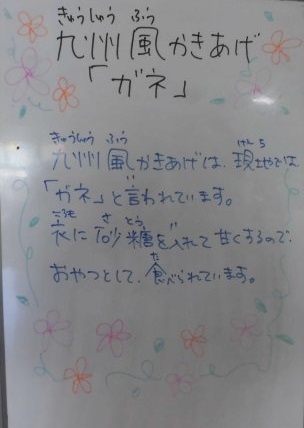 きゅうしゅう ふう
九州風かきあげ
「ガネ」
きゅうしゅう ふう げんち
九州風かきあげは、現地では
「ガネ」と言われています。
ころも さ とう い
衣に砂糖を入れて甘くするので、
た
おやつとして、食べられています。